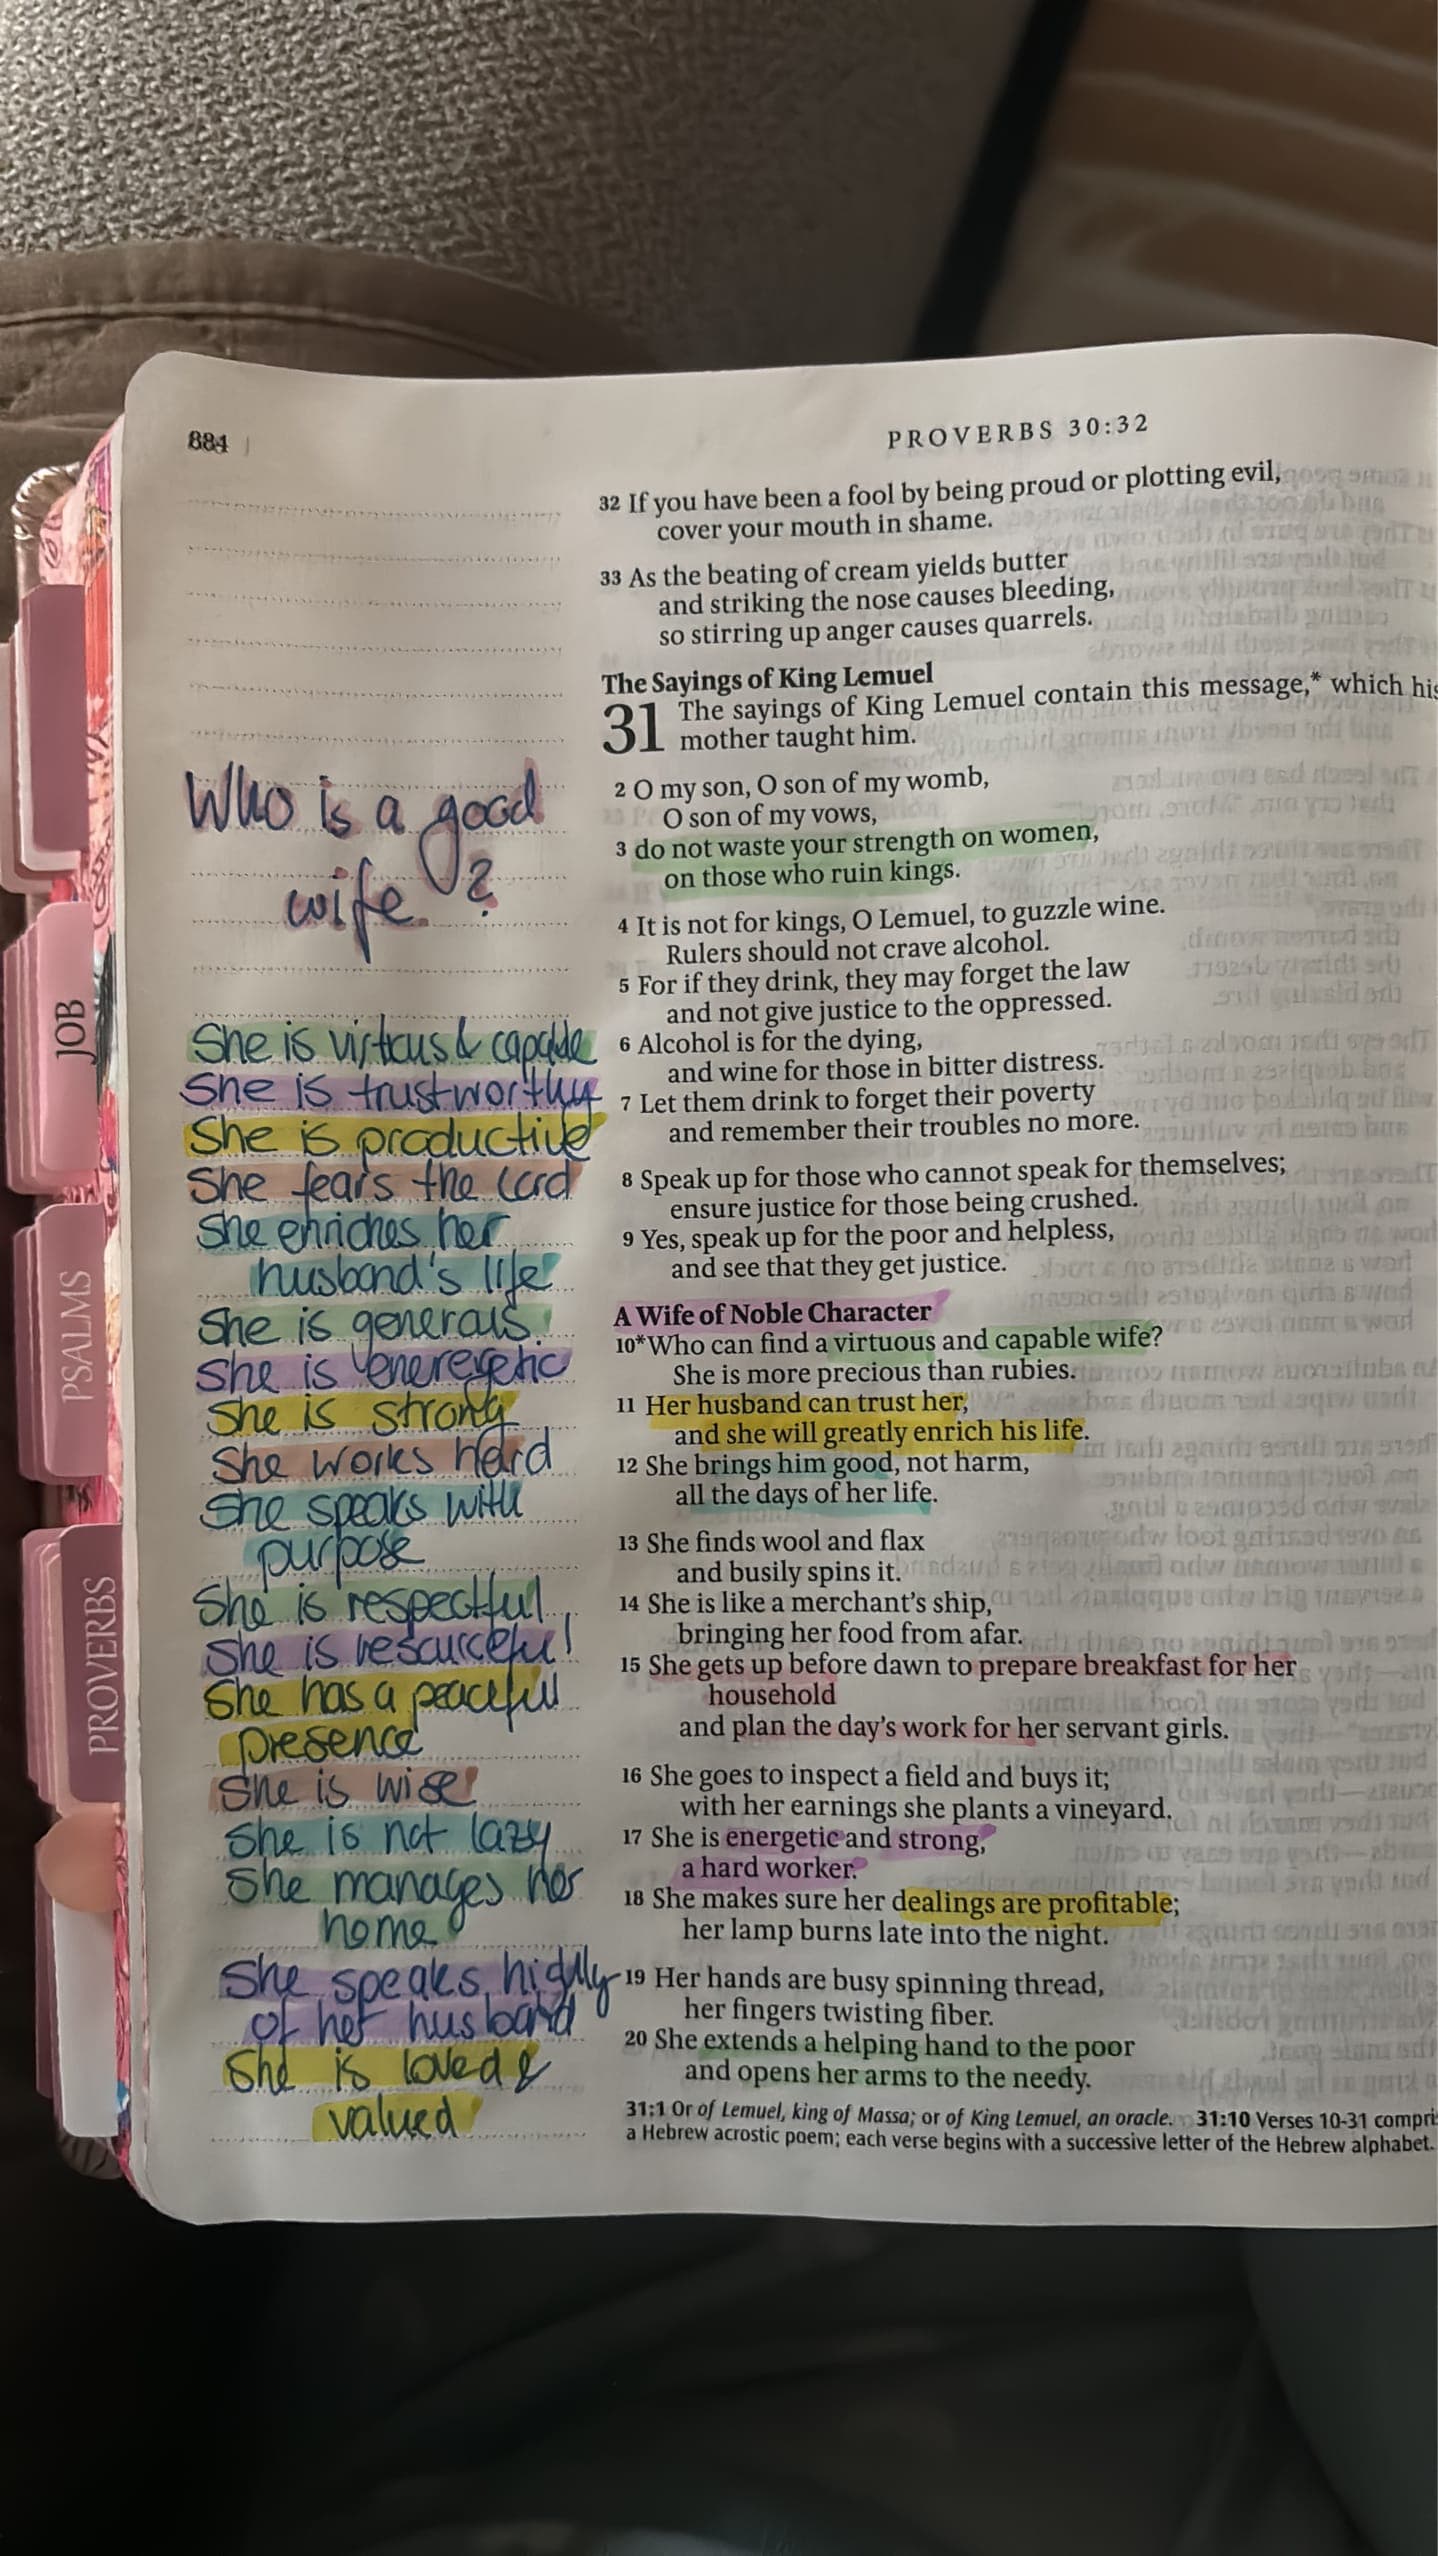 884
PROVERBS 30:32
32 If you have been a fool by being proud or plotting evil,
cover your mouth in shame.
33 As the beating of cream yields butter
and striking the nose causes bleeding,
so stirring up anger causes quarrels.
The Sayings of King Lemuel
31 The sayings of King Lemuel contain this message,* which his
mother taught him.
2 O my son, O son of my womb,
O son of my vows,
3 do not waste your strength on women,
on those who ruin kings.
4 It is not for kings, O Lemuel, to guzzle wine.
Rulers should not crave alcohol.
5 For if they drink, they may forget the law
and not give justice to the oppressed.
6 Alcohol is for the dying,
and wine for those in bitter distress.
7 Let them drink to forget their poverty
and remember their troubles no more.
8 Speak up for those who cannot speak for themselves;
ensure justice for those being crushed.
9 Yes, speak up for the poor and helpless,
and see that they get justice.
A Wife of Noble Character
10*Who can find a virtuous and capable wife?
She is more precious than rubies.
11 Her husband can trust her,
and she will greatly enrich his life.
12 She brings him good, not harm,
all the days of her life.
13 She finds wool and flax
and busily spins it.
14 She is like a merchant's ship,
bringing her food from afar.
15 She gets up before dawn to prepare breakfast for her
household
and plan the day's work for her servant girls.
16 She goes to inspect a field and buys it;
with her earnings she plants a vineyard.
17 She is energetic and strong,
a hard worker.
18 She makes sure her dealings are profitable;
her lamp burns late into the night.
19 Her hands are busy spinning thread,
her fingers twisting fiber.
20 She extends a helping hand to the poor
and opens her arms to the needy.
31:1 Or of Lemuel, king of Massa; or of King Lemuel, an oracle. 31:10 Verses 10-31 compri
a Hebrew acrostic poem; each verse begins with a successive letter of the Hebrew alphabet.
Who is a good
wife ?
She is virtous & capable
She is trustworthy
She is productive
She fears the Lord
She enriches her
husband's life
She is generous
She is energetic
She is strong
She works hard
She speaks with
purpose
She is respectful
She is resourceful
She has a peaceful
presence
She is wise
She is not lazy
She manages her
home
She speaks highly
of her husband
She is loved &
valued
JOB
PSALMS
PROVERBS